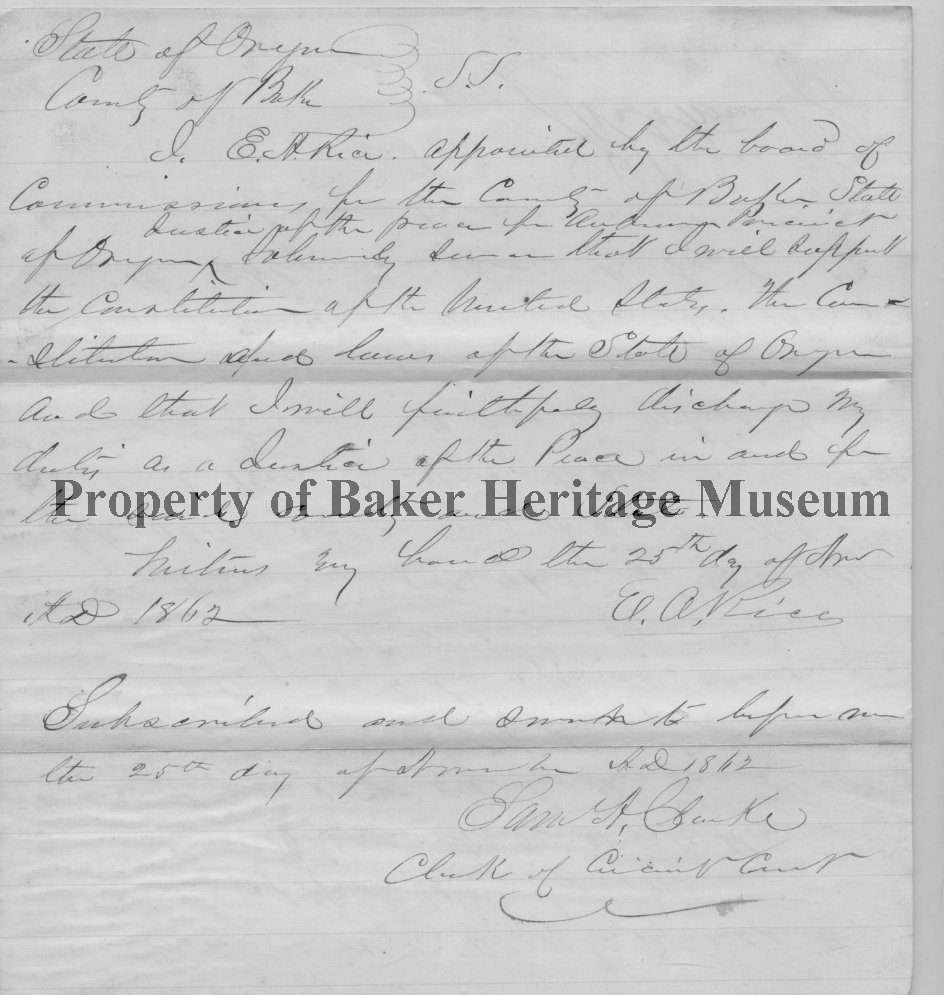 State of Oregon
County of Baker } S.S.
I. E. A. Rice. appointed by the board of
Commissioners for the County of Baker State
Justice of the peace for Precinct
of Oregon ^ solemnly swear that I will support
the Constitution of the United States. The Con-
-stitution and laws of the State of Oregon
And that I will faithfully discharge my
duties as a Justice of the Peace in and for
the said County and State.
Property of Baker Heritage Museum
Witness my hand the 25th day of Nov
AD 1862 E. A. Rice
Subscribed and sworn to before me
the 25th day of November AD 1862
Sam A. Clarke
Clerk of Circuit Court